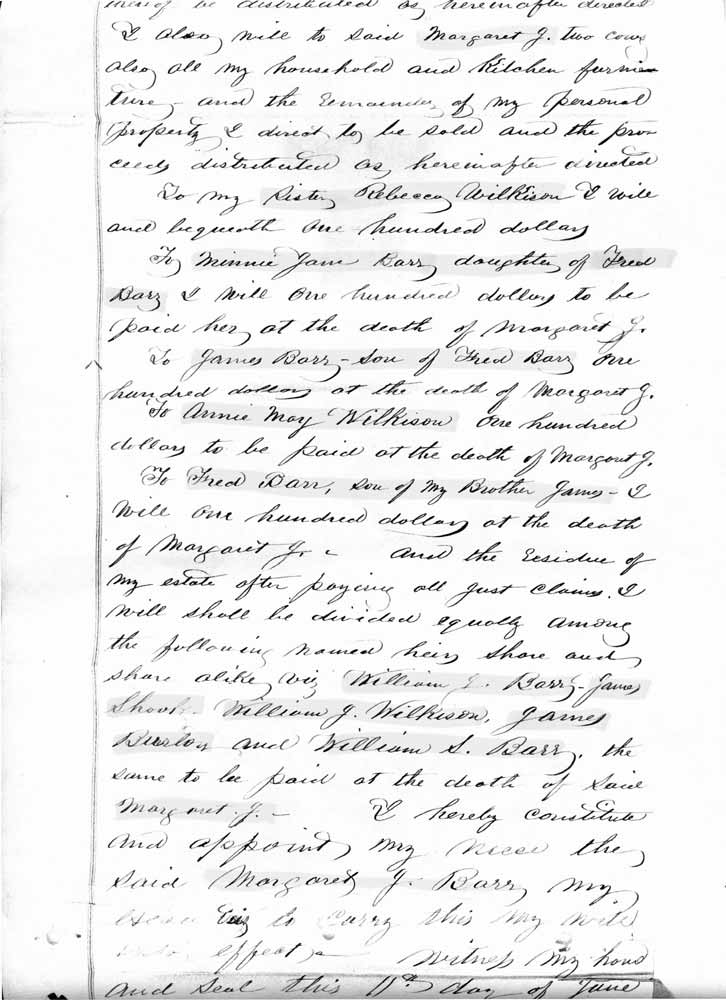 be distributed as hereinafter directed
I also will to said Margaret J. two cows
also all my household and Kitchen furni-
ture - and the remainder of my personal
property I direct to be sold and the pro-
ceeds distributed as hereinafter directed
To my Sister Rebecca Wilkison I will
and bequeath One hundred dollars
To Minnie Jane Barr daughter of Fred
Barr I will One hundred dollars to be
paid her at the death of Margaret J.
To James Barr - Son of Fred Barr One
hundred dollars at the death of Margaret J.
To Annie May Wilkison One hundred
dollars to be paid at the death of Margaret J.
To Fred Barr, son of my Brother James - I
Will One hundred dollars at the death
of Margaret J. - And the residue of
my estate after paying all just claims. I
will shall be divided equally among
the following named heirs share and
share alike, viz William J. Barr - James
Shook - William J. Wilkison, James
and William S. Barr, the
same to be paid at the death of Said
Margaret J. - I hereby constitute
and appoint my niece the
said Margaret J. Barr my
to carry this my will
effect - Witness my hand
and seal this 11th day of June